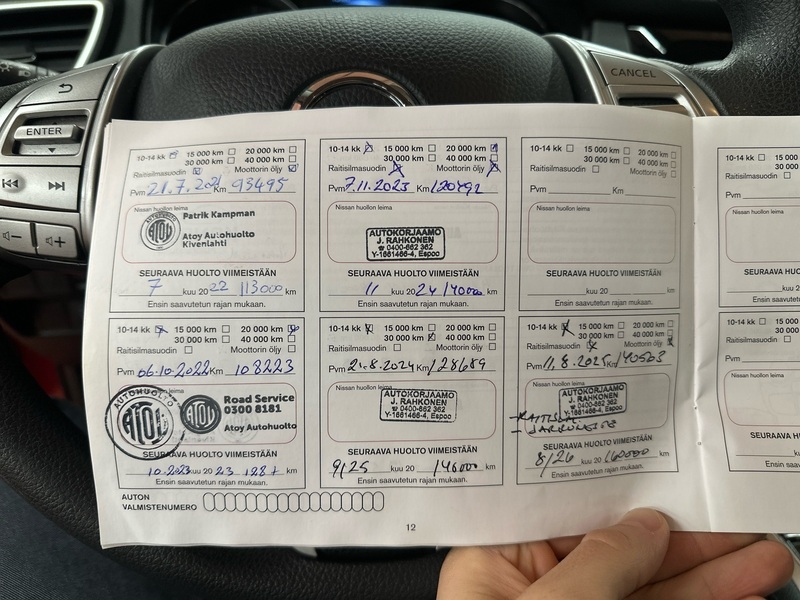 ENTER
CANCEL
10-14 kk 15 000 km 20 000 km
30 000 km 40 000 km
Raitisilmasuodin Moottorin öljy
Pvm 21.7.2021 Km 93495
Nissan huollon leima
ATOY
Patrik Kampman
Atoy Autohuolto
Kivenlahti
SEURAAVA HUOLTO VIIMEISTÄÄN
7 kuu 2022 113000 km
Ensin saavutetun rajan mukaan.
10-14 kk 15 000 km 20 000 km
30 000 km 40 000 km
Raitisilmasuodin Moottorin öljy
Pvm 7.11.2023 Km 120492
Nissan huollon leima
AUTOKORJAAMO
J. RAHKONEN
☎ 0400-662 362
Y-1661466-4, Espoo
SEURAAVA HUOLTO VIIMEISTÄÄN
11 kuu 2024 140000 km
Ensin saavutetun rajan mukaan.
10-14 kk 15 000 km 20 000 km
30 000 km 40 000 km
Raitisilmasuodin Moottorin öljy
Pvm Km
Nissan huollon leima
SEURAAVA HUOLTO VIIMEISTÄÄN
kuu 20 km
Ensin saavutetun rajan mukaan.
10-14 kk
Raitisilmasuodin
Pvm
Nissan huollon leima
Ensin
10-14 kk 15 000 km 20 000 km
30 000 km 40 000 km
Raitisilmasuodin Moottorin öljy
Pvm 06.10.2022 Km 108223
leima
AUTOHUOLTO
ATOY
Road Service
0300 8181
Atoy Autohuolto
SEURAAVA HUOLTO VIIMEISTÄÄN
10.2023 kuu 2023 128 t km
Ensin saavutetun rajan mukaan.
10-14 kk 15 000 km 20 000 km
30 000 km 40 000 km
Raitisilmasuodin Moottorin öljy
Pvm 21.8.2024 Km 128689
Nissan huollon leima
AUTOKORJAAMO
J. RAHKONEN
☎ 0400-662 362
Y-1661466-4, Espoo
SEURAAVA HUOLTO VIIMEISTÄÄN
9/25 kuu 20 148000 km
Ensin saavutetun rajan mukaan.
10-14 kk 15 000 km 20 000 km
30 000 km 40 000 km
Raitisilmasuodin Moottorin öljy
Pvm 11.8.2025 Km 140503
Nissan huollon leima
AUTOKORJAAMO
J. RAHKONEN
☎ 0400-662 362
Y-1661466-4, Espoo
SEURAAVA HUOLTO VIIMEISTÄÄN
8/26 kuu 20 160000 km
Ensin saavutetun rajan mukaan.
10-14 kk
Raitisilmasuodin
Pvm
Nissan huollon leima
Ensin
AUTON
VALMISTENUMERO
12